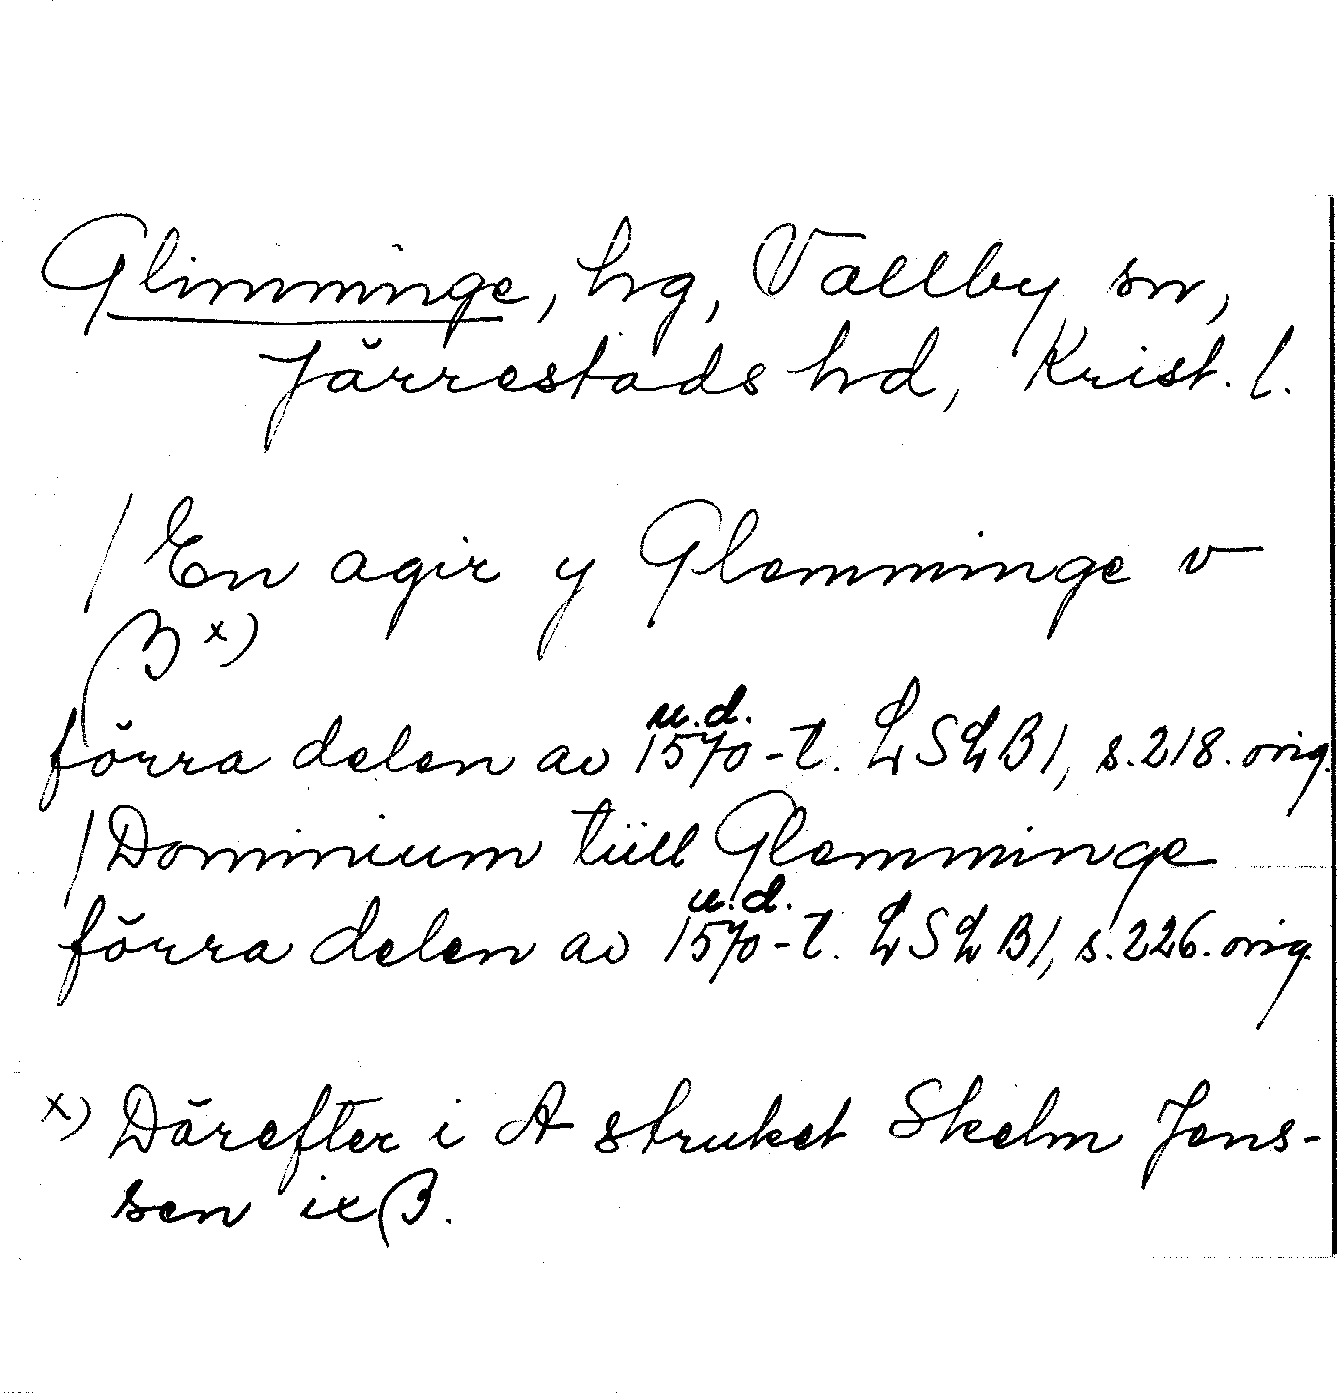 Glimminge, hg, Vallby sn,
Järrestads hd, Krist. l.
/ En agir y Glemminge v
β x)
u.d.
förra delen av 1570-t. LSLB1, s.218. orig.
/ Dominium tiill Glemminge
u.d.
förra delen av 1570-t. LSLB1, s.226. orig.
x) Därefter i A struket Skelm Jens-
sen ix β.